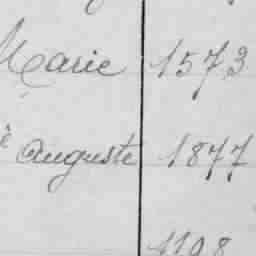 Marie 1573
Auguste 1877
1198